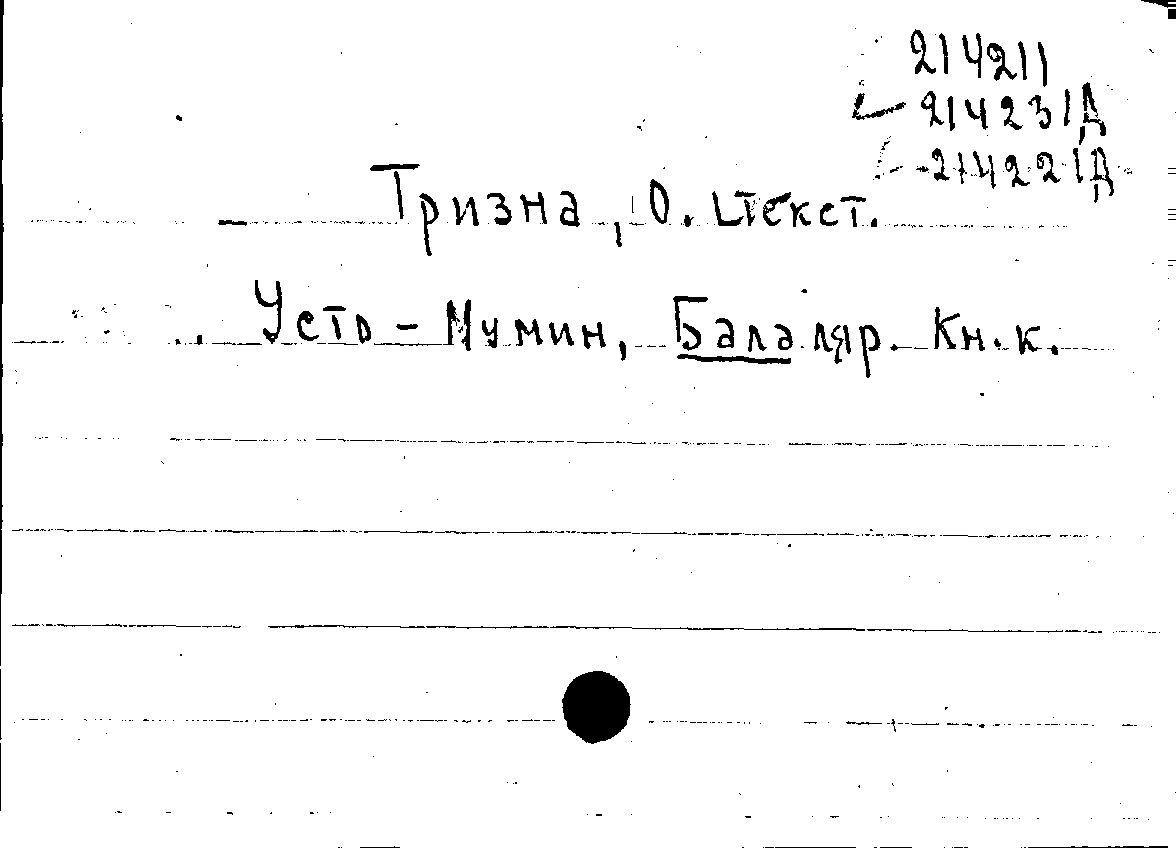 214211
214231Д
214221Д
Тризна, О. [текст.
Усто-Мумин, Балаляр. Кн. к.